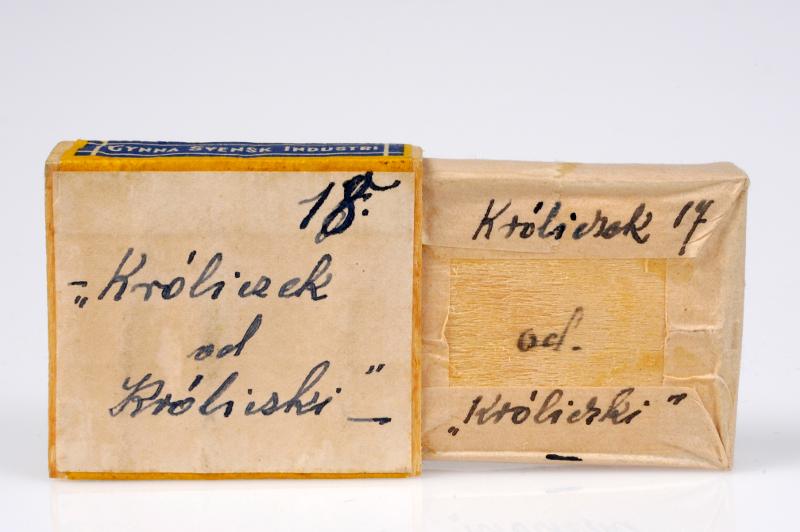 GYNNA SVENSK INDUSTRI
18.
„Króliczek
od
Króliczki"
Króliczek 17
od.
„Króliczki"